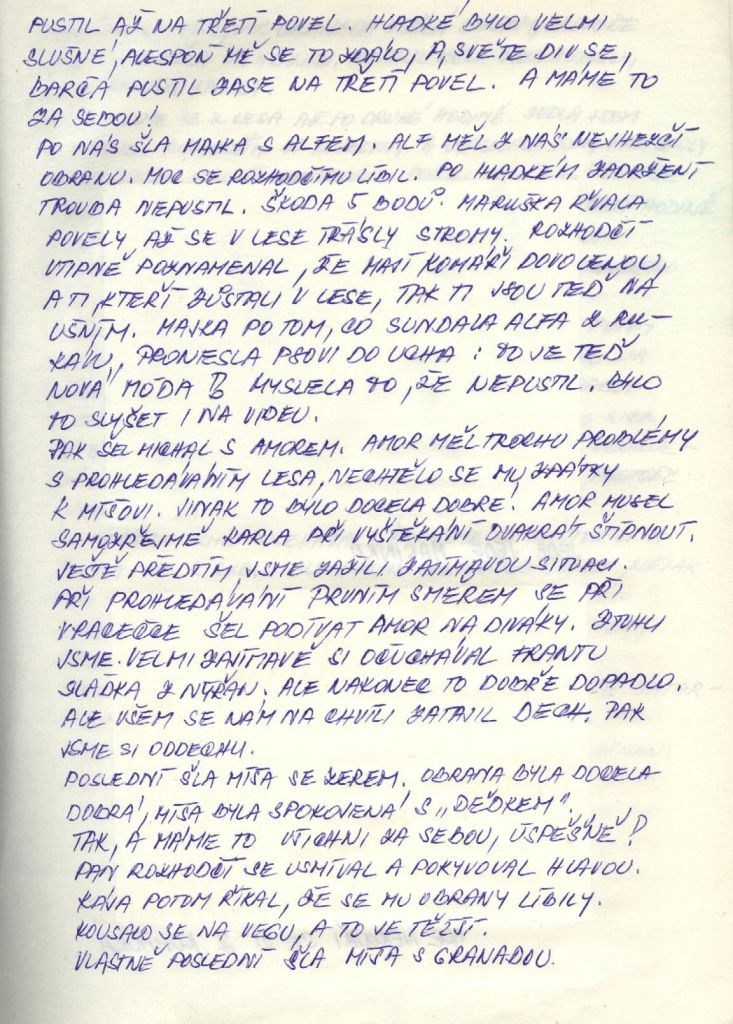 PUSTIL AŽ NA TŘETÍ POVEL. HLADKÉ BYLO VELMI
SLUŠNÉ, ALESPOŇ MĚ SE TO ZDÁLO, A, SVĚTE DIV SE,
BARČA PUSTIL ZASE NA TŘETÍ POVEL. A MÁME TO
ZA SEBOU!
PO NÁS ŠLA MAJKA S ALFEM. ALE MĚL Z NÁS NEJHEZČÍ
OBRANU. MOC SE ROZHODČÍMU LÍBIL. PO HLADKÉM ZADRŽENÍ
TROUBA NEPUSTIL. ŠKODA 5 BODŮ. MARUŠKA ŘVALA
POVELY, AŽ SE V LESE TŘÁSLY STROMY. ROZHODČÍ
VTIPNĚ POZNAMENAL, ŽE MAJÍ KOMÁŘI DOVOLENOU,
A TI, KTEŘÍ ZŮSTALI V LESE, TAK TI JSOU TEĎ NA
UŠNÍM. MAJKA PO TOM, CO SUNDALA ALFA Z RU-
KÁVU, PRONESLA PSOVI DO UCHA: TO JE TEĎ
NOVÁ MÓDA? MYSLELA TO, ŽE NEPUSTIL. BYLO
TO SLYŠET I NA VIDEU.
PAK ŠEL MICHAL S AMOREM. AMOR MĚL TROCHU PROBLÉMY
S PROHLEDÁVÁNÍM LESA, NECHTĚLO SE MU ZPÁTKY
K MÍŠOVI. JINAK TO BYLO DOCELA DOBRÉ. AMOR MUSEL
SAMOZŘEJMĚ KARLA PŘI VYŠTĚKÁNÍ DVAKRÁT ŠTÍPNOUT.
JEŠTĚ PŘEDTÍM JSME ZAŽILI ZAJÍMAVOU SITUACI.
PŘI PROHLEDÁVÁNÍ PRVNÍM SMĚREM SE PŘI
VRACEČCE ŠEL PODÍVAT AMOR NA DIVÁKY. ZTUHLI
JSME. VELMI ZAJÍMAVĚ SI OČUCHÁVAL FRANTU
SLÁDKA Z NÝŘAN. ALE NAKONEC TO DOBŘE DOPADLO.
ALE VŠEM SE NÁM NA CHVÍLI ZATAJIL DECH. PAK
JSME SI ODDECHLI.
POSLEDNÍ ŠLA MÍŠA SE ZEREM. OBRANA BYLA DOCELA
DOBRÁ, MÍŠA BYLA SPOKOJENÁ S „DĚDKEM".
TAK, A MÁME TO VŠICHNI ZA SEBOU, ÚSPĚŠNĚ!
PAN ROZHODČÍ SE USMÍVAL A POKYVOVAL HLAVOU.
KÁJA POTOM ŘÍKAL, ŽE SE MU OBRANY LÍBILY.
KOUSALO SE NA VEGU, A TO JE TĚŽŠÍ.
VLASTNĚ POSLEDNÍ ŠLA MÍŠA S GRANADOU.